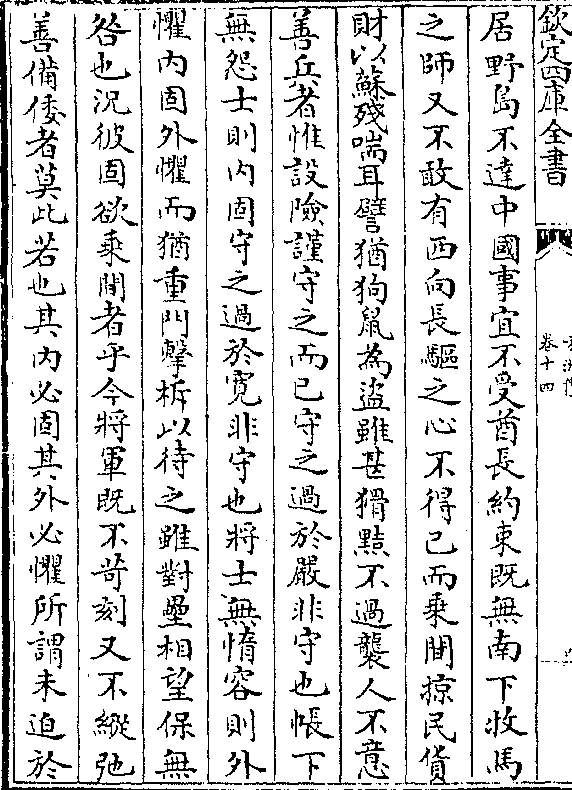 欽定四庫全書
卷十四
居野島不達中國事宜不受酋長約束既無南下牧馬
之師又不敢有西向長驅之心不得已而乘間掠民貨
財以蘇殘喘耳譬猶狗鼠為盜雖甚猾黠不過襲人不意
善兵者惟設險謹守之而已守之過於嚴非守也帳下
無怨士則内固守之過於寛非守也將士無惰容則外
懼内固外懼而猶重門擊柝以待之雖對壘相望保無
咎也況彼固欲乘間者乎今將軍既不苛刻又不縱弛
善備倭者莫此若也其内必固其外必懼所謂未迫於